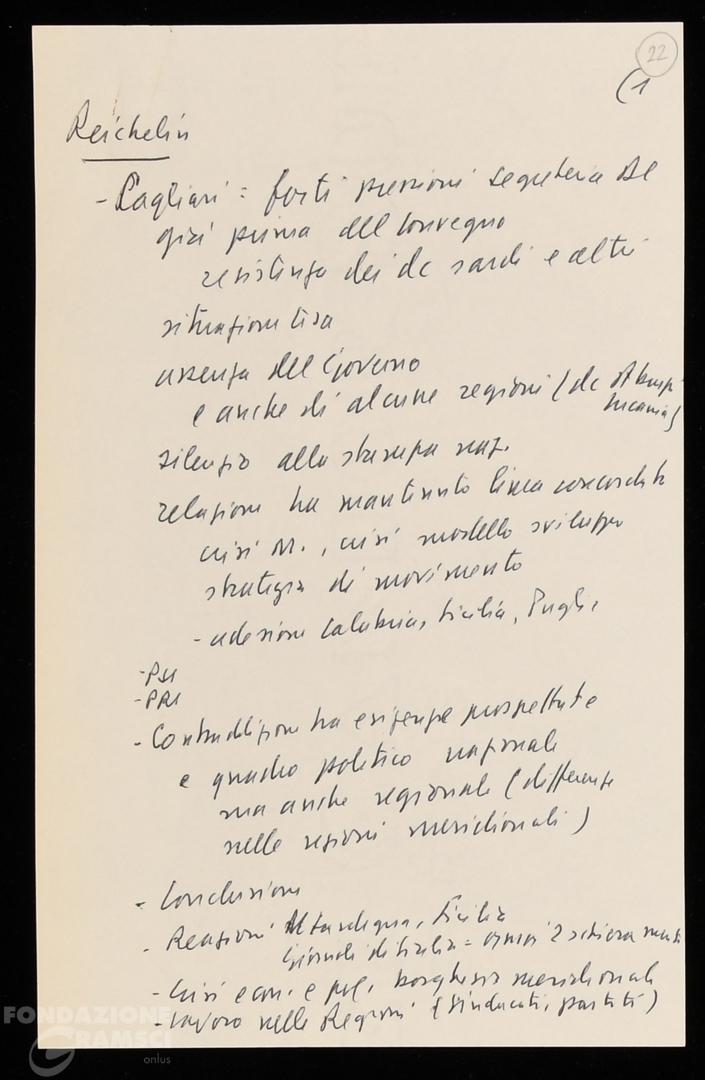 22
(1
Reichelin
- Cagliari = forti pressioni segreteria DC
già prima del convegno
resistenza dei dc sardi e altri
situazione tesa
assenza del Governo
e anche di alcune regioni (dc Abruzzi
Lucania)
silenzio alla stampa naz.
relazione ha mantenuto linea concordata
crisi M., crisi modello sviluppo
strategia di movimento
- adesione Calabria, Sicilia, Puglia
- PSI
- PRI
- Contraddizione tra esigenze prospettate
e quadro politico nazionale
ma anche regionale (differenze
nelle regioni meridionali)
- Conclusione
- Reazioni Sardegna, Sicilia
Giornale di Sicilia = ormai 2 schieramenti
- Crisi econ. e pol. borghesia meridionale
- lavoro nelle Regioni (sindacati, partiti)
FONDAZIONE
GRAMSCI
onlus